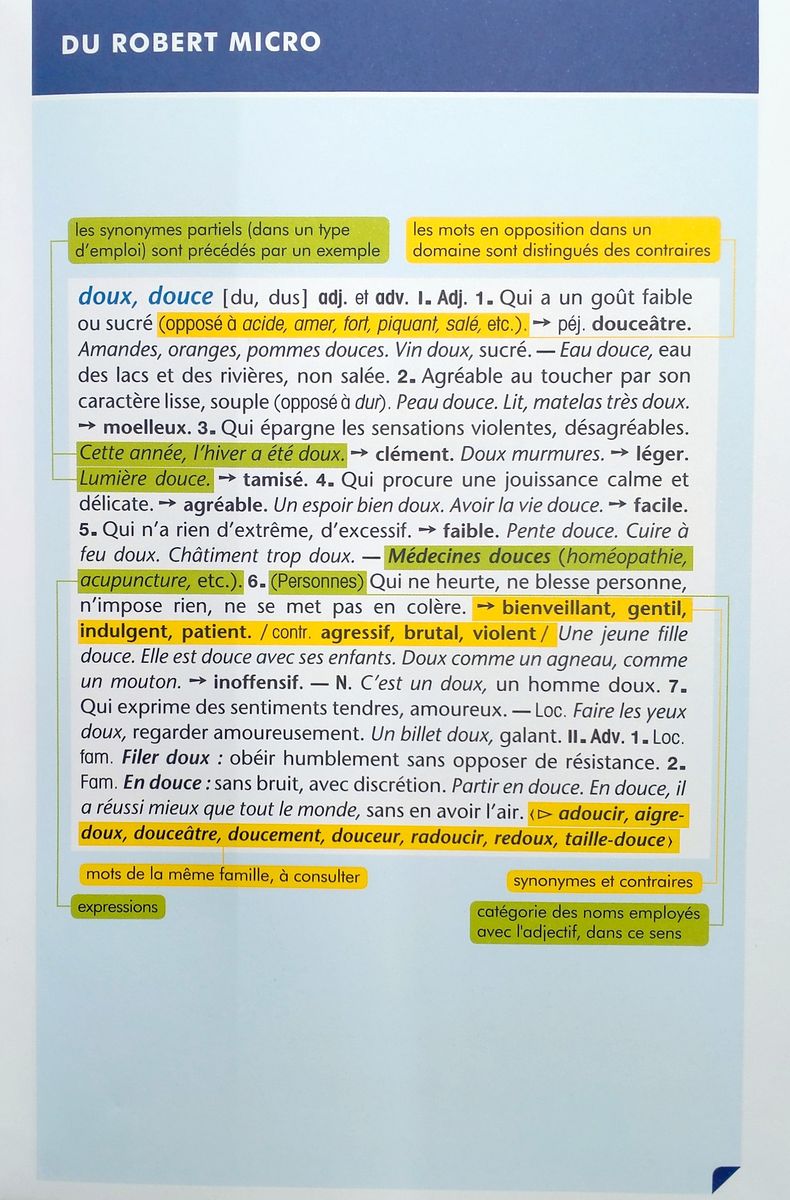 DU ROBERT MICRO
les synonymes partiels (dans un type
d'emploi) sont précédés par un exemple
les mots en opposition dans un
domaine sont distingués des contraires
doux, douce [du, dus] adj. et adv. I. Adj. 1. Qui a un goût faible
ou sucré (opposé à acide, amer, fort, piquant, salé, etc.). → péj. douceâtre.
Amandes, oranges, pommes douces. Vin doux, sucré. — Eau douce, eau
des lacs et des rivières, non salée. 2. Agréable au toucher par son
caractère lisse, souple (opposé à dur). Peau douce. Lit, matelas très doux.
→ moelleux. 3. Qui épargne les sensations violentes, désagréables.
Cette année, l'hiver a été doux. → clément. Doux murmures. → léger.
Lumière douce. → tamisé. 4. Qui procure une jouissance calme et
délicate. → agréable. Un espoir bien doux. Avoir la vie douce. → facile.
5. Qui n'a rien d'extrême, d'excessif. → faible. Pente douce. Cuire à
feu doux. Châtiment trop doux. — Médecines douces (homéopathie,
acupuncture, etc.). 6. (Personnes) Qui ne heurte, ne blesse personne,
n'impose rien, ne se met pas en colère. → bienveillant, gentil,
indulgent, patient. / contr. agressif, brutal, violent / Une jeune fille
douce. Elle est douce avec ses enfants. Doux comme un agneau, comme
un mouton. → inoffensif. — N. C'est un doux, un homme doux. 7.
Qui exprime des sentiments tendres, amoureux. — Loc. Faire les yeux
doux, regarder amoureusement. Un billet doux, galant. II. Adv. 1. Loc.
fam. Filer doux : obéir humblement sans opposer de résistance. 2.
Fam. En douce : sans bruit, avec discrétion. Partir en douce. En douce, il
a réussi mieux que tout le monde, sans en avoir l'air. ⟨▷ adoucir, aigre-
doux, douceâtre, doucement, douceur, radoucir, redoux, taille-douce⟩
mots de la même famille, à consulter
synonymes et contraires
expressions
catégorie des noms employés
avec l'adjectif, dans ce sens